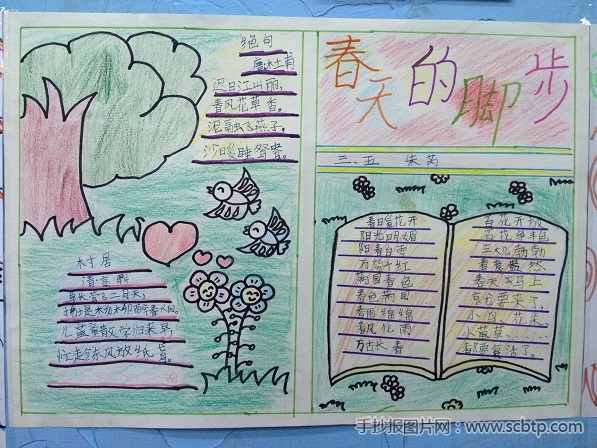 绝句
唐 杜甫
迟日江山丽,
春风花草香。
泥融飞燕子,
沙暖睡鸳鸯。
村居
清 高鼎
草长莺飞二月天,
儿童散学归来早,
忙趁东风放纸鸢。
春天的脚步
三、五 朱芮
春暖花开
阳光明媚
阳春白雪
万紫千红
满园春色
春色满园
春雨绵绵
春风化雨
万古长春
百花开放
百花争艳
生机勃勃
春意盎然
春天马上
就要来了,
小鸟、花朵、
小草……
都要复活了。
手抄报图片网:www.scbtp.com